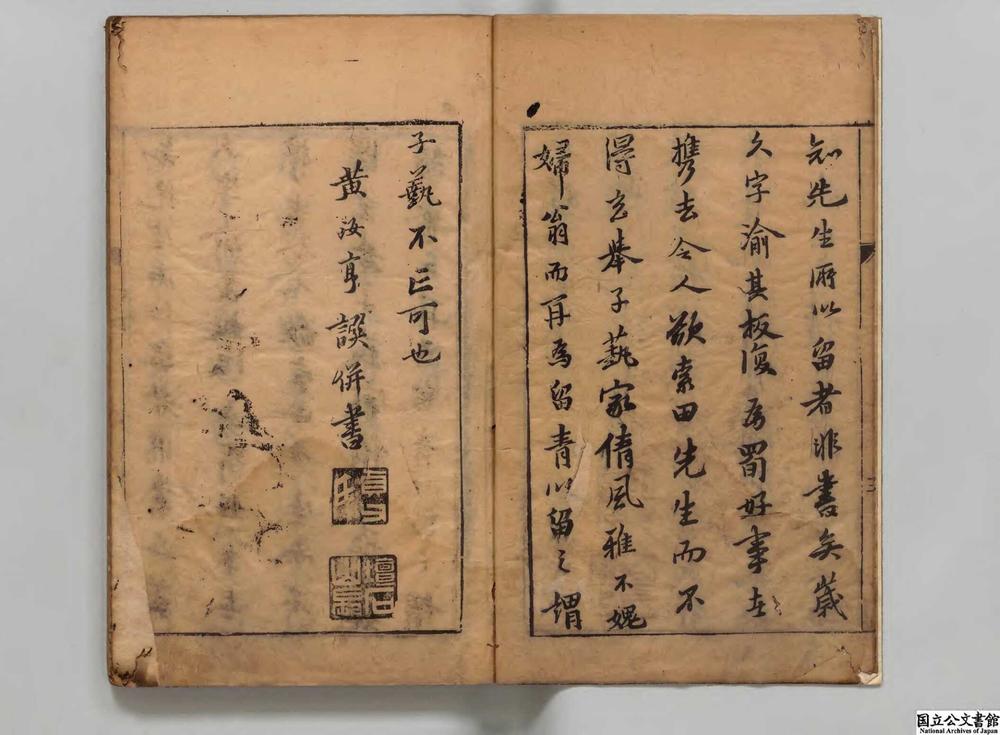 知先生所以留者非書矣歲
久字渝其板復為蜀好事者
攜去令人欲索田先生而不
得玄舉子藝家倩風雅不媿
婦翁而再為留青以留之謂
子藝不亡可也
黃汝亨譔併書
貞父氏
国立公文書館
National Archives of Japan